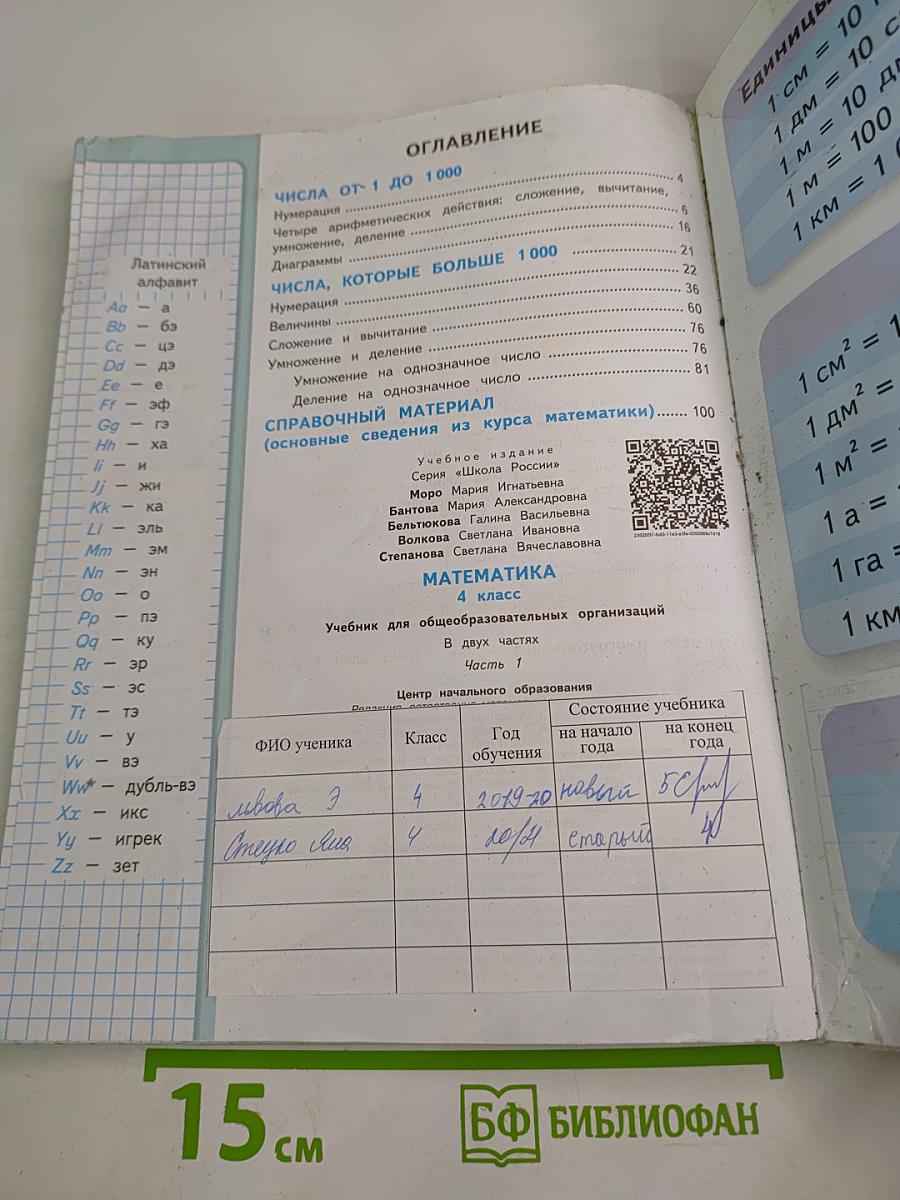 Латинский
алфавит
Aa — а
Bb — бэ
Cc — цэ
Dd — дэ
Ee — е
Ff — эф
Gg — гэ
Hh — ха
Ii — и
Jj — жи
Kk — ка
Ll — эль
Mm — эм
Nn — эн
Oo — о
Pp — пэ
Qq — ку
Rr — эр
Ss — эс
Tt — тэ
Uu — у
Vv — вэ
Ww — дубль-вэ
Xx — икс
Yy — игрек
Zz — зет
ОГЛАВЛЕНИЕ
ЧИСЛА ОТ 1 ДО 1 000
Нумерация ... 4
Четыре арифметических действия: сложение, вычитание,
умножение, деление ... 6
Диаграммы ... 16
ЧИСЛА, КОТОРЫЕ БОЛЬШЕ 1 000 ... 21
Нумерация ... 22
Величины ... 36
Сложение и вычитание ... 60
Умножение и деление ... 76
Умножение на однозначное число ... 76
Деление на однозначное число ... 81
СПРАВОЧНЫЙ МАТЕРИАЛ
(основные сведения из курса математики) ... 100
Учебное издание
Серия «Школа России»
Моро Мария Игнатьевна
Бантова Мария Александровна
Бельтюкова Галина Васильевна
Волкова Светлана Ивановна
Степанова Светлана Вячеславовна
МАТЕМАТИКА
4 класс
Учебник для общеобразовательных организаций
В двух частях
Часть 1
Центр начального образования
ФИО ученика Класс Год обучения Состояние учебника
на начало года на конец года
Львова Э 4 2019-20 новый 5
Стецко Яна 4 20/21 старый 4
Единицы
1 см = 10
1 дм = 10 с
1 м = 10 д
1 м = 100
1 км = 1
1 см² = 1
1 дм² =
1 м² =
1 а =
1 га =
1 км
15 см
БФ БИБЛИОФАН